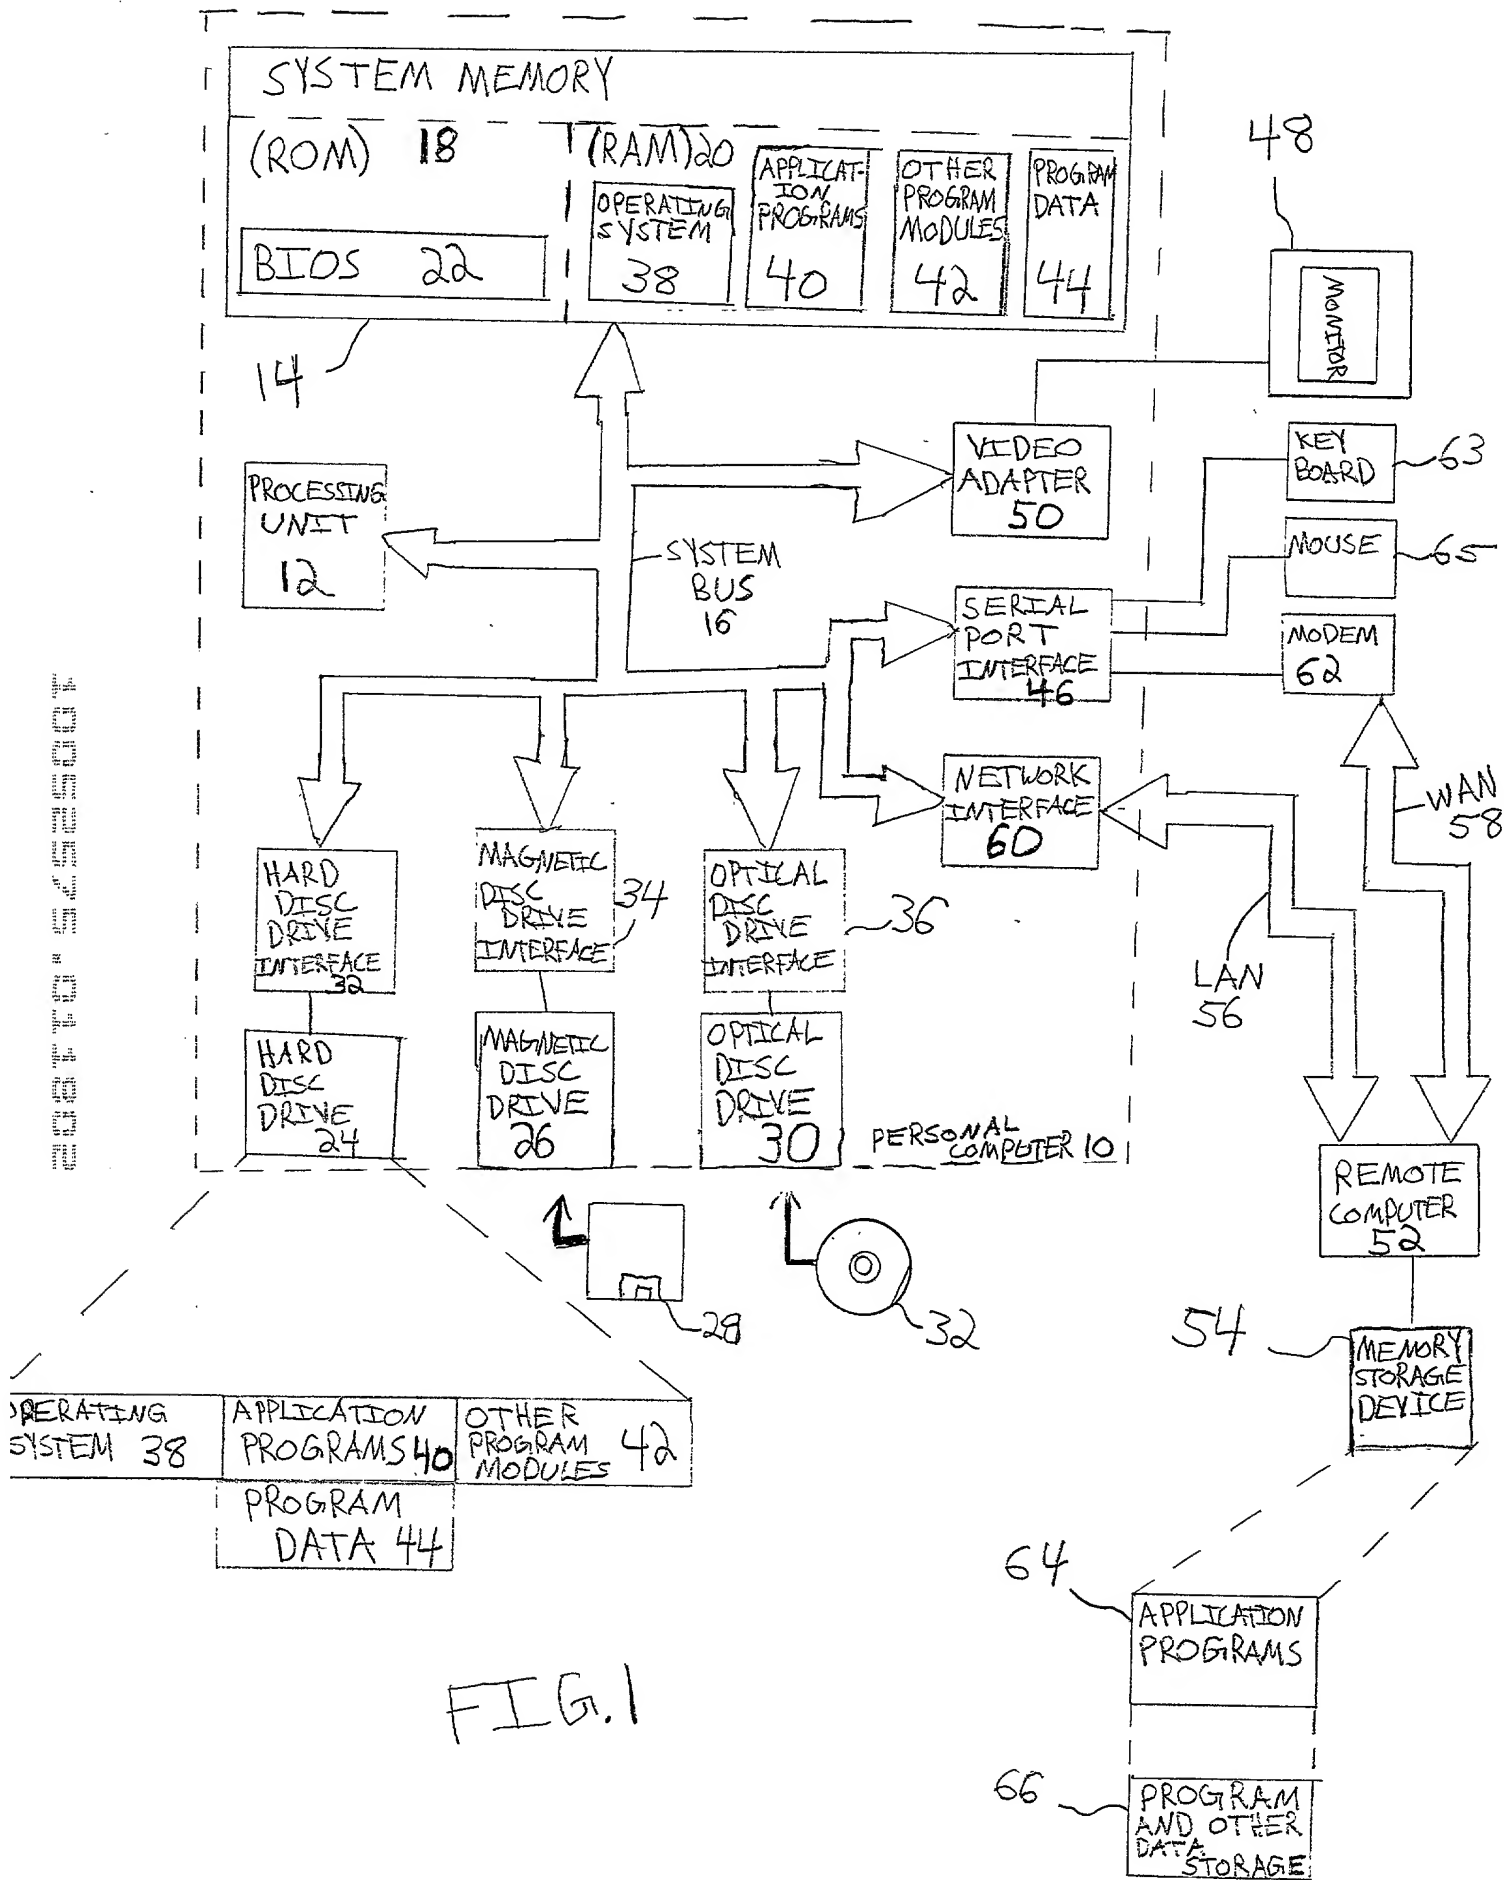 SYSTEM MEMORY
(ROM) 18
BIOS 22
(RAM) 20
OPERATING
SYSTEM
38
APPLICAT-
ION
PROGRAMS
40
OTHER
PROGRAM
MODULES
42
PROGRAM
DATA
44
14
48
MONITOR
PROCESSING
UNIT
12
SYSTEM
BUS
16
VIDEO
ADAPTER
50
KEY
BOARD
63
MOUSE
65
SERIAL
PORT
INTERFACE
46
MODEM
62
NETWORK
INTERFACE
60
WAN
58
LAN
56
HARD
DISC
DRIVE
INTERFACE
32
MAGNETIC
DISC
DRIVE
INTERFACE
34
OPTICAL
DISC
DRIVE
INTERFACE
36
HARD
DISC
DRIVE
24
MAGNETIC
DISC
DRIVE
26
OPTICAL
DISC
DRIVE
30
PERSONAL
COMPUTER 10
REMOTE
COMPUTER
52
28
32
54
MEMORY
STORAGE
DEVICE
PERATING
SYSTEM 38
APPLICATION
PROGRAMS 40
OTHER
PROGRAM
MODULES
42
PROGRAM
DATA 44
64
APPLICATION
PROGRAMS
66
PROGRAM
AND OTHER
DATA
STORAGE
FIG. 1
10052575.011802